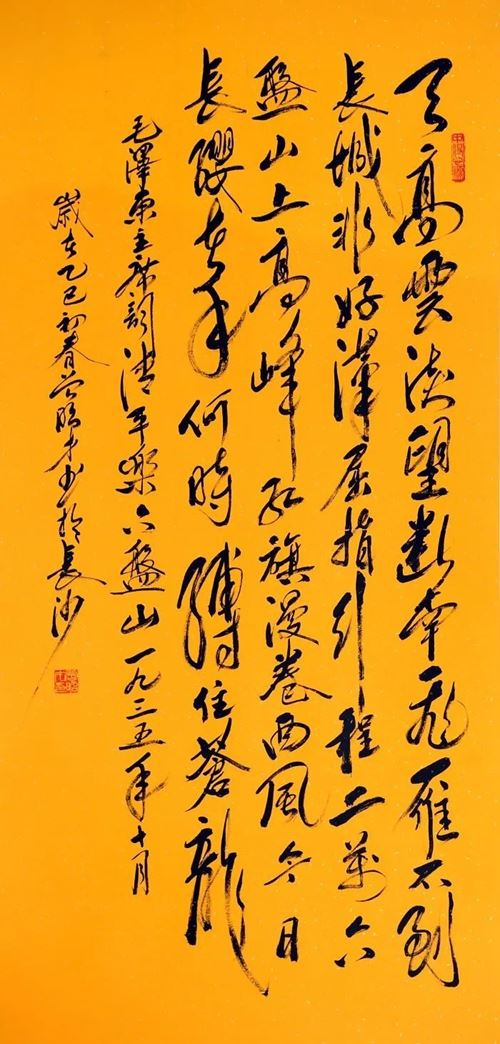 天高雲淡望斷南飛雁不到
長城非好漢屈指行程二萬六
盤山上高峰紅旗漫卷西風今日
長纓在手何時縛住蒼龍
毛澤東主席詞清平樂六盤山一九三五年十月
歲在乙巳初春书於長沙